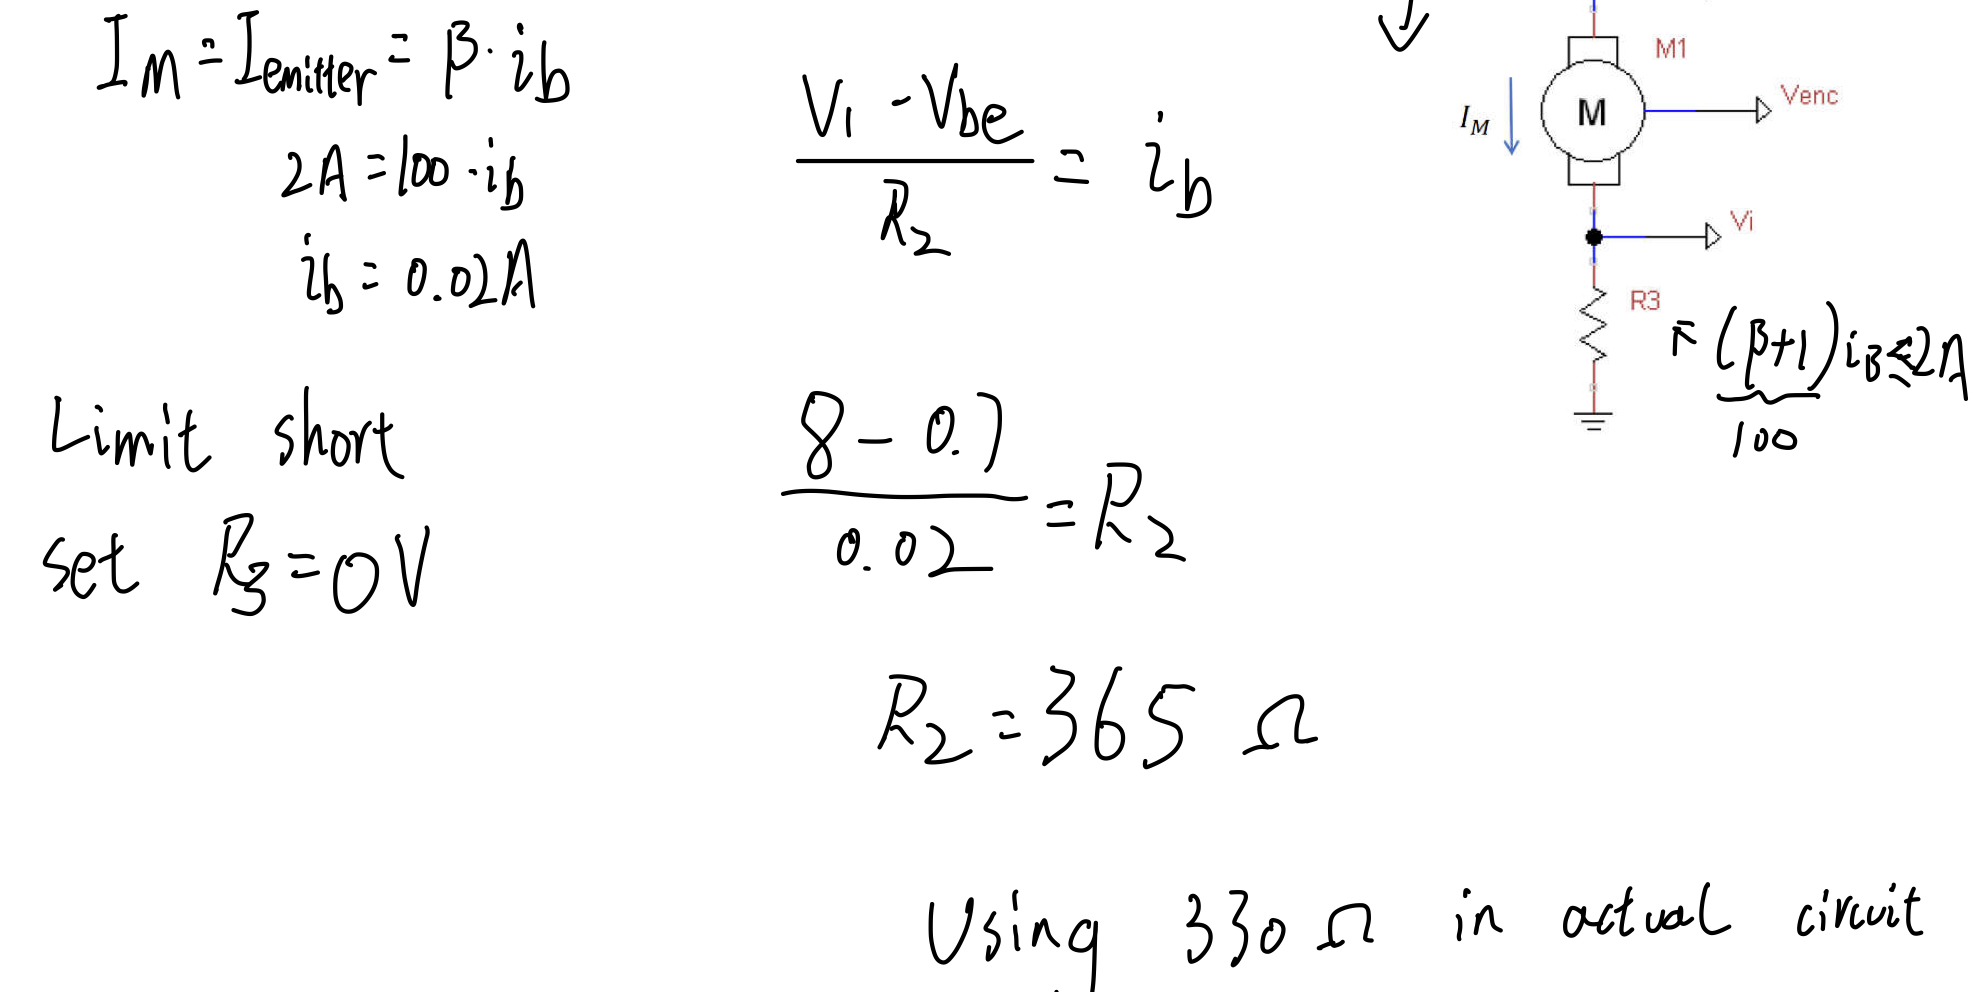 I_M = I_emitter = β · i_b
2A = 100 · i_b
i_b = 0.02A
Limit short
set R_3 = 0V
V_1 - V_be
R_2
= i_b
8 - 0.7
0.02
= R_2
R_2 = 365 Ω
Using 330 Ω in actual circuit
M1
M
Venc
I_M
Vi
R3
(β+1) i_B ≤ 2A
100